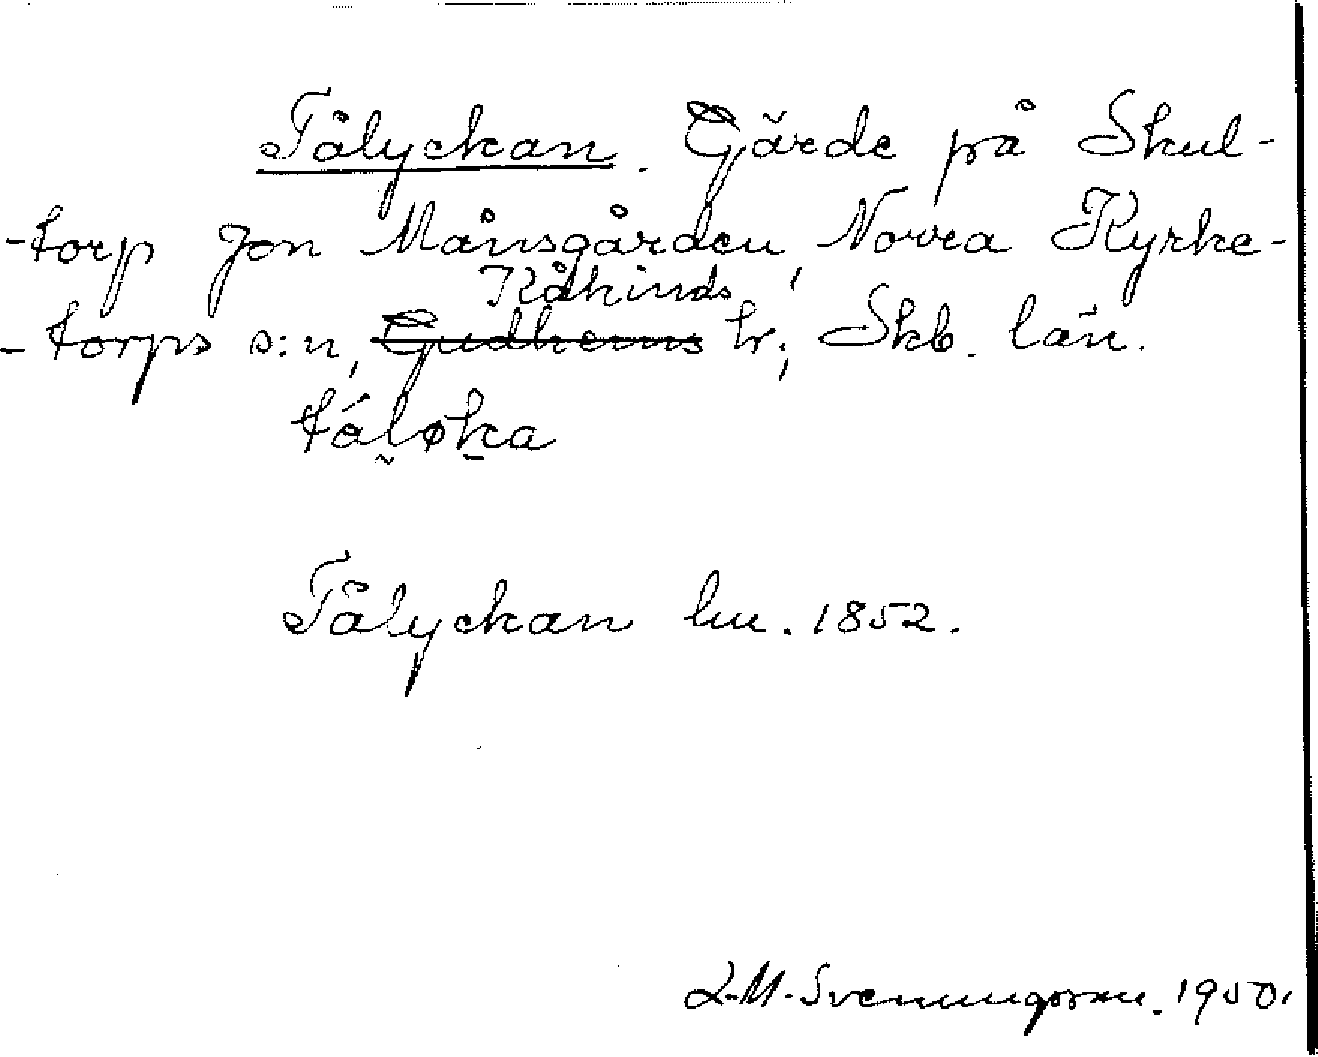 Tålyckan. Gärde på Skul-
-torp Jon Månsgården, Norra Kyrke-
Kåkinds
-torps s:n, Gudhems hr., Skb. län.
tåløka
Tålyckan lm. 1852.
L.M. Svenungsson. 1950.